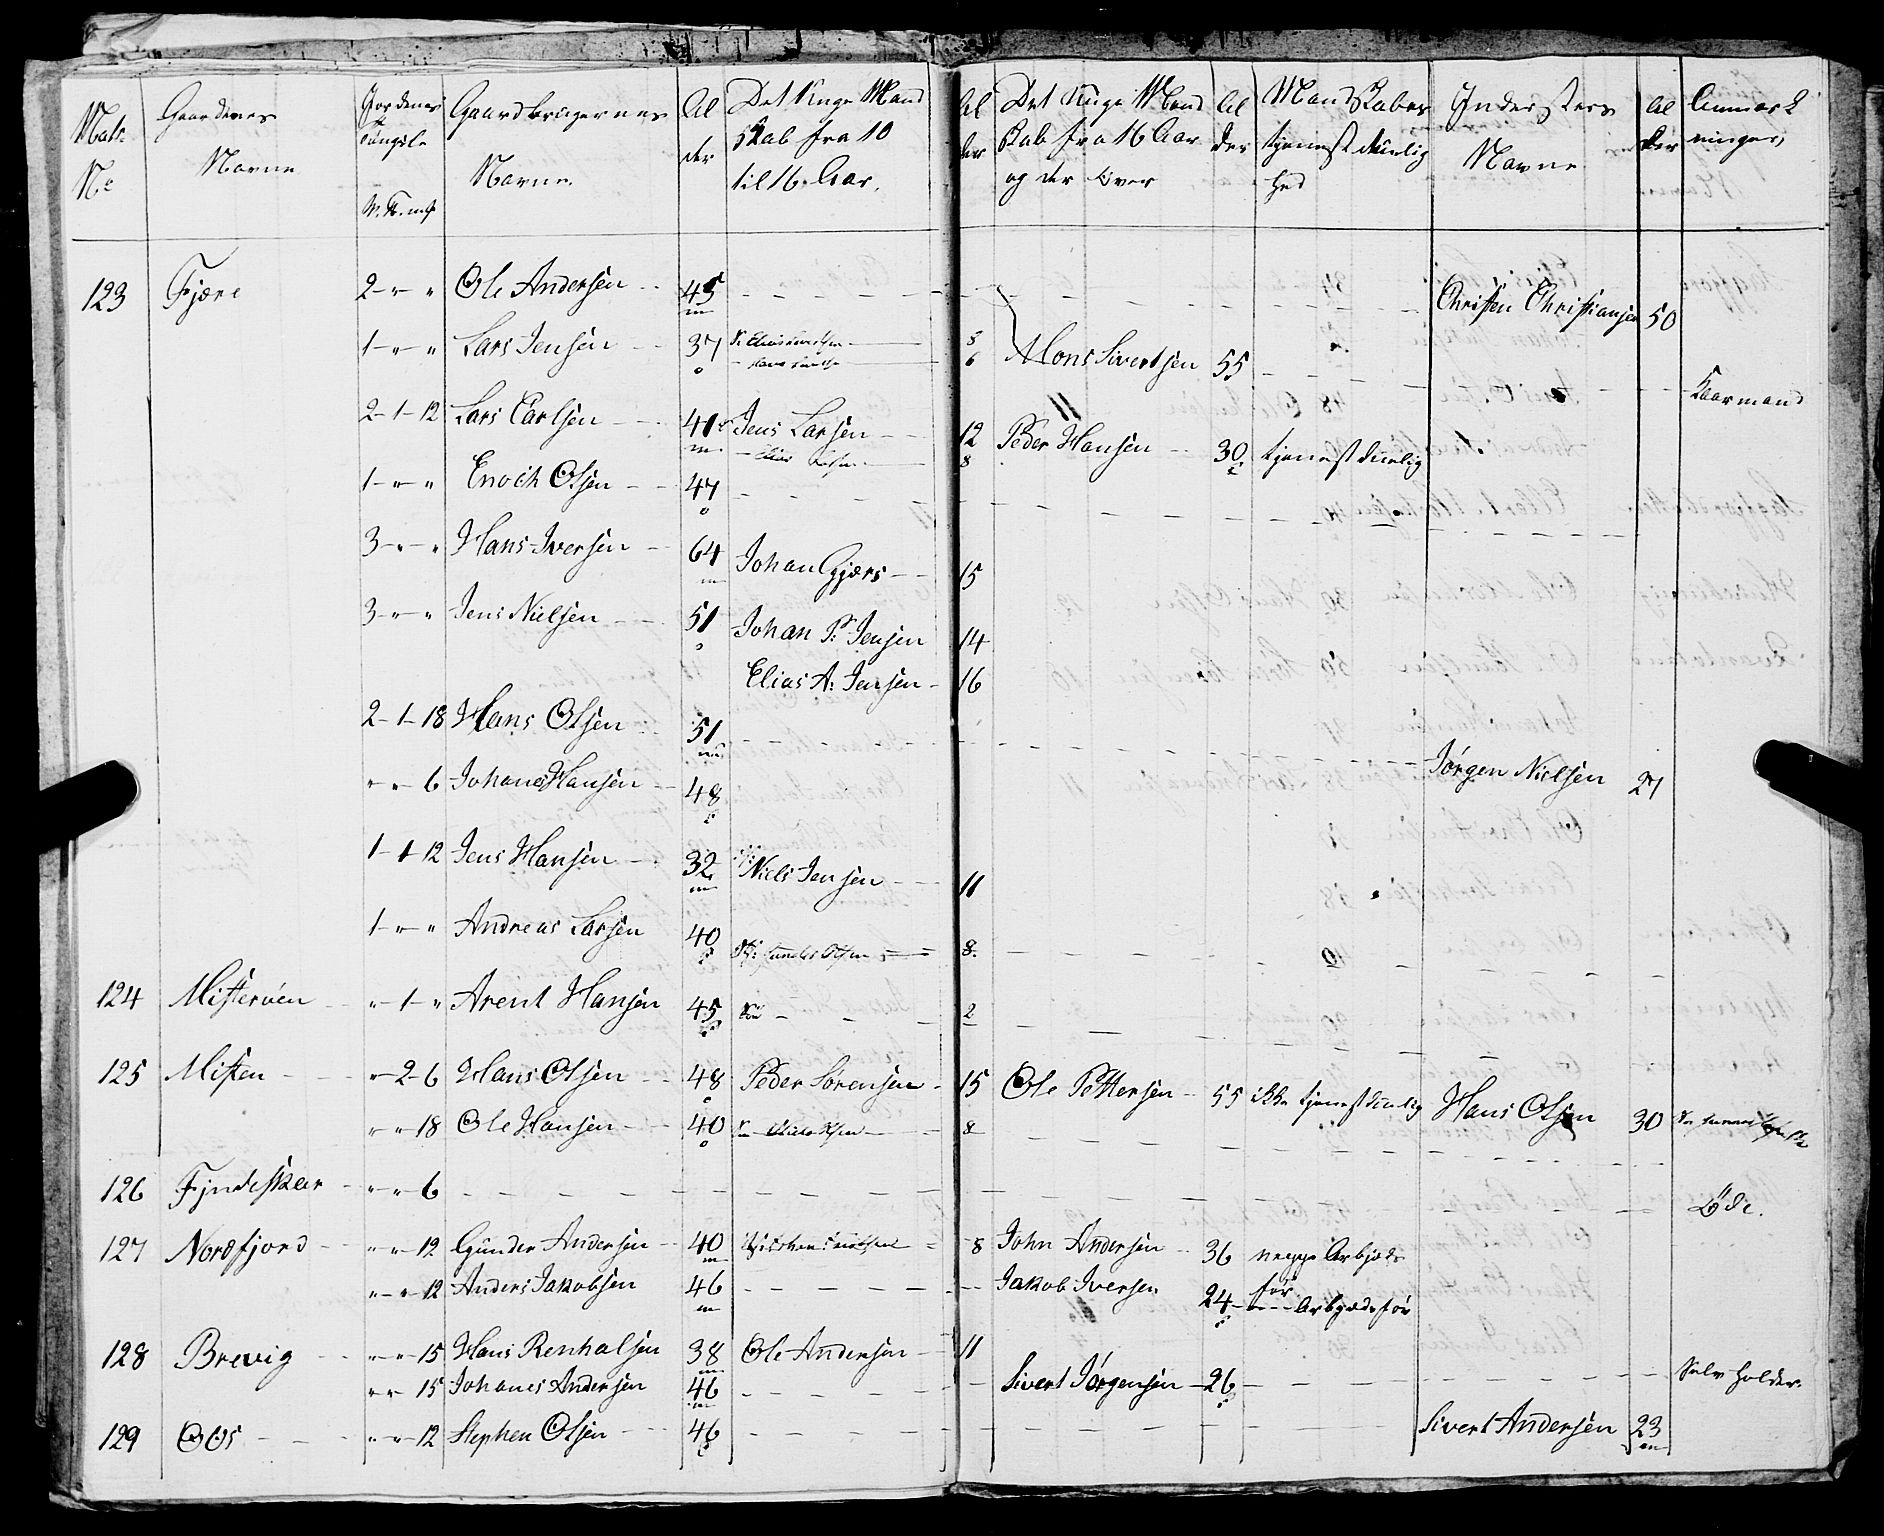 Matr. Nº | Gaardenes Navne | Jordenes | Gaardbrugernes Navne. | Al der | Det Unge Mand skab fra 10 til 16 Aar. | Al der | Det Unge Mand skab fra 16 Aar og der över | Al der | Mandskabes tjenestduelig hed | Indersters Navne | Al der | Anmærk ninger,
123 Fjære 2 - " - " Ole Andersen 45 Christen Christiansen 50
1 - " - " Lars Jensen 37 Mons Sivertsen 55 Kaarmand
2 - 1 - 12 Lars Carlsen 41 Jens Larsen 12 Peder Hansen 30 tjenestduelig
8
1 - " - " Enoch Olsen 47
3 - " - " Hans Iversen 64 Johan Gjærs 15
3 - " - " Jens Nielsen 51 Johan P. Jensen 14
Elias A: Jensen 16
2 - 1 - 18 Hans Olsen 51
" - " 6 Johanes Hansen 48 Jörgen Nielsen 27
1 - 1 - 12 Jens Hansen 32 Niels Jensen 11
1 - " - " Andreas Larsen 40 8.
124 Misterøen " - 1 - " Arent Hansen 45 2
125 Misten " - 2 - 6 Hans Olsen 48 Peder Sörensen 15 Ole Pettersen 55 ikke tjenestduelig Hans Olsen 30
" - " 18 Ole Hansen 40 8
126 Fyndeskar " - " 6 Öde.
127 Nordfjord " - " 12 Gunder Andersen 40 8 John Andersen 36 neppe Arbjeds för
" - " 12 Anders Jakobsen 46 Jakob Iversen 24 Arbejdsför
128 Brevig " - " 15 Hans Renholsen 38 Ole Andersen 11
" - " 15 Johanes Andersen 46 Sivert Jörgensen 26 Selv holder.
129 Oos " - " 12 Stephen Olsen 46 Sivert Andersen 23